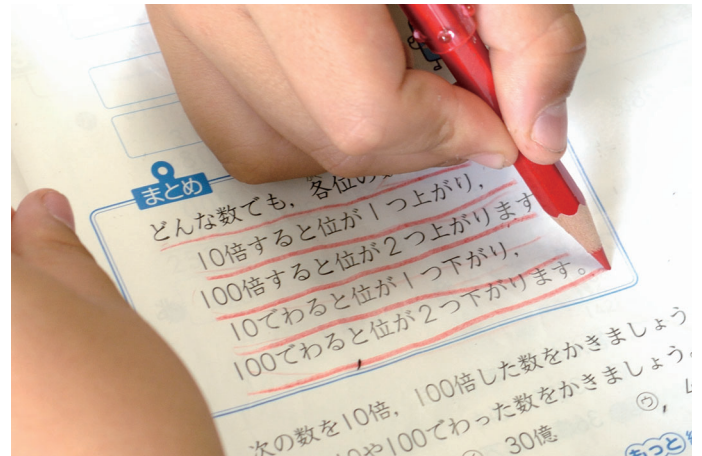 まとめ
どんな数でも，各位の
10倍すると位が1つ上がり，
100倍すると位が2つ上がります
10でわると位が1つ下がり，
100でわると位が2つ下がります。
次の数を10倍，100倍した数をかきましょう
10や100でわった数をかきましょう。
30億
㋒
もっと